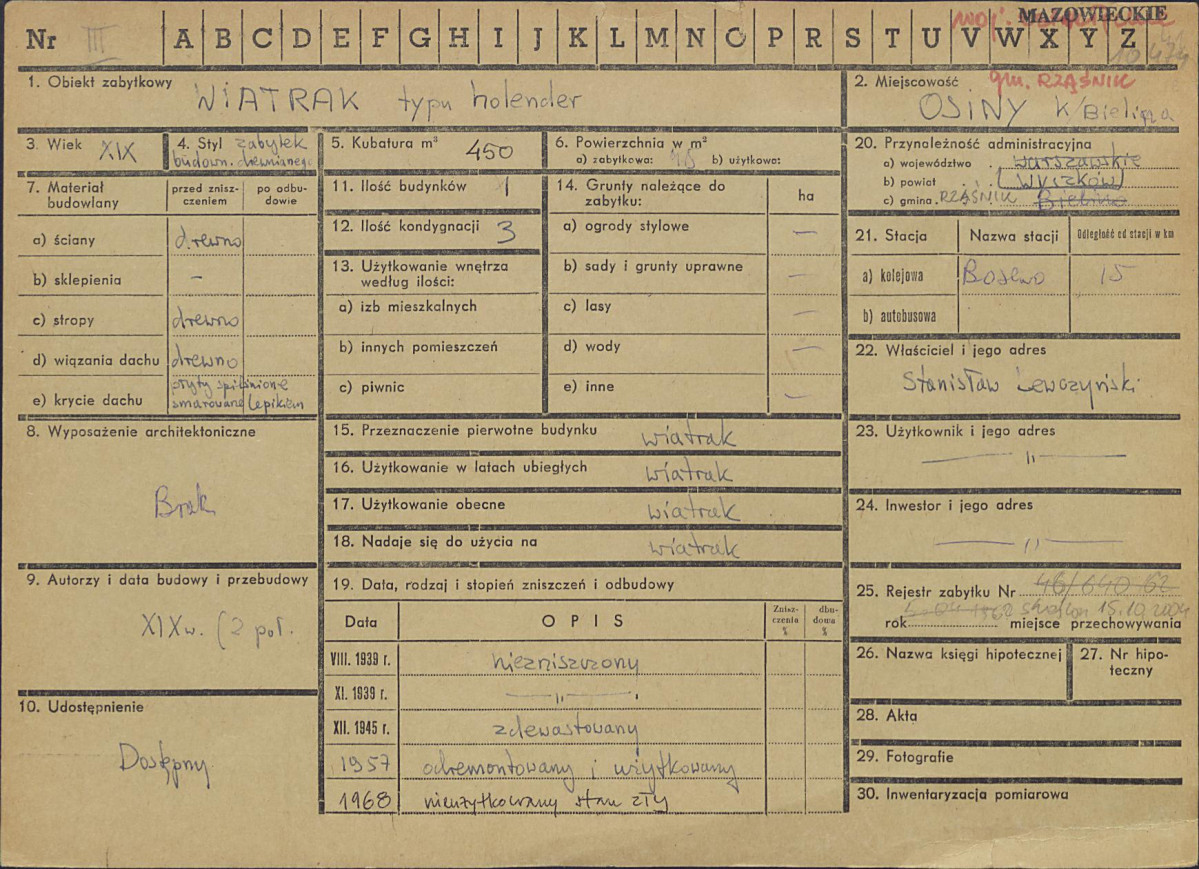 Nr III A B C D E F G H I J K L M N O P R S T U V W X Y Z
woj. MAZOWIECKIE
10474
1. Obiekt zabytkowy
WIATRAK typu holender
2. Miejscowość gm. RZĄŚNIK
OSINY k/Bielina
3. Wiek XIX
4. Styl zabytek
budown. drewnianego
5. Kubatura m³ 450
6. Powierzchnia w m²
a) zabytkowa: b) użytkowa:
7. Materiał budowlany
przed zniszczeniem
po odbudowie
a) ściany drewno
b) sklepienia –
c) stropy drewno
d) wiązania dachu drewno
e) krycie dachu płyty spilśnione
smarowane lepikiem
8. Wyposażenie architektoniczne
Brak
9. Autorzy i data budowy i przebudowy
XIX w. (2 poł.
10. Udostępnienie
Dostępny
11. Ilość budynków 1
12. Ilość kondygnacji 3
13. Użytkowanie wnętrza
według ilości:
a) izb mieszkalnych
b) innych pomieszczeń
c) piwnic
14. Grunty należące do
zabytku:
ha
a) ogrody stylowe –
b) sady i grunty uprawne –
c) lasy –
d) wody –
e) inne –
15. Przeznaczenie pierwotne budynku wiatrak
16. Użytkowanie w latach ubiegłych wiatrak
17. Użytkowanie obecne wiatrak
18. Nadaje się do użycia na wiatrak
19. Data, rodzaj i stopień zniszczeń i odbudowy
Data OPIS Zniszczenia % dbudowa %
VIII. 1939 r. niezniszczony
XI. 1939 r. — „ —
XII. 1945 r. zdewastowany
1957 odremontowany i użytkowany
1968 nieużytkowany stan zły
20. Przynależność administracyjna
a) województwo . warszawskie
b) powiat . . (Wyszków)
c) gmina . RZĄŚNIK Bielino
21. Stacja Nazwa stacji Odległość od stacji w km
a) kolejowa Bosewo 15
b) autobusowa
22. Właściciel i jego adres
Stanisław Lewczyński
23. Użytkownik i jego adres
— „ —
24. Inwestor i jego adres
— „ —
25. Rejestr zabytku Nr 46/640 62
rok 5.04 1962 skreślon 15.10.2004 miejsce przechowywania
26. Nazwa księgi hipotecznej
27. Nr hipoteczny
28. Akta
29. Fotografie
30. Inwentaryzacja pomiarowa